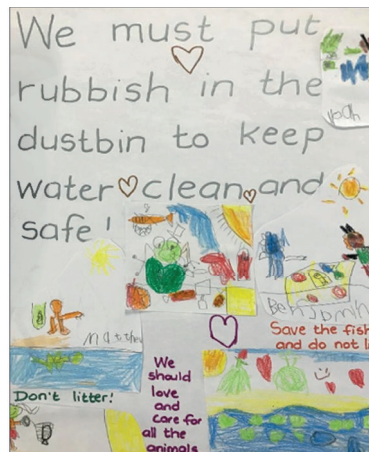 We must put
rubbish in the
dustbin to keep
water clean and
safe!
Noah
Matthew
Benjamin
Save the fish
and do not l
Don't litter!
We
should
love
and
care for
all the
animals